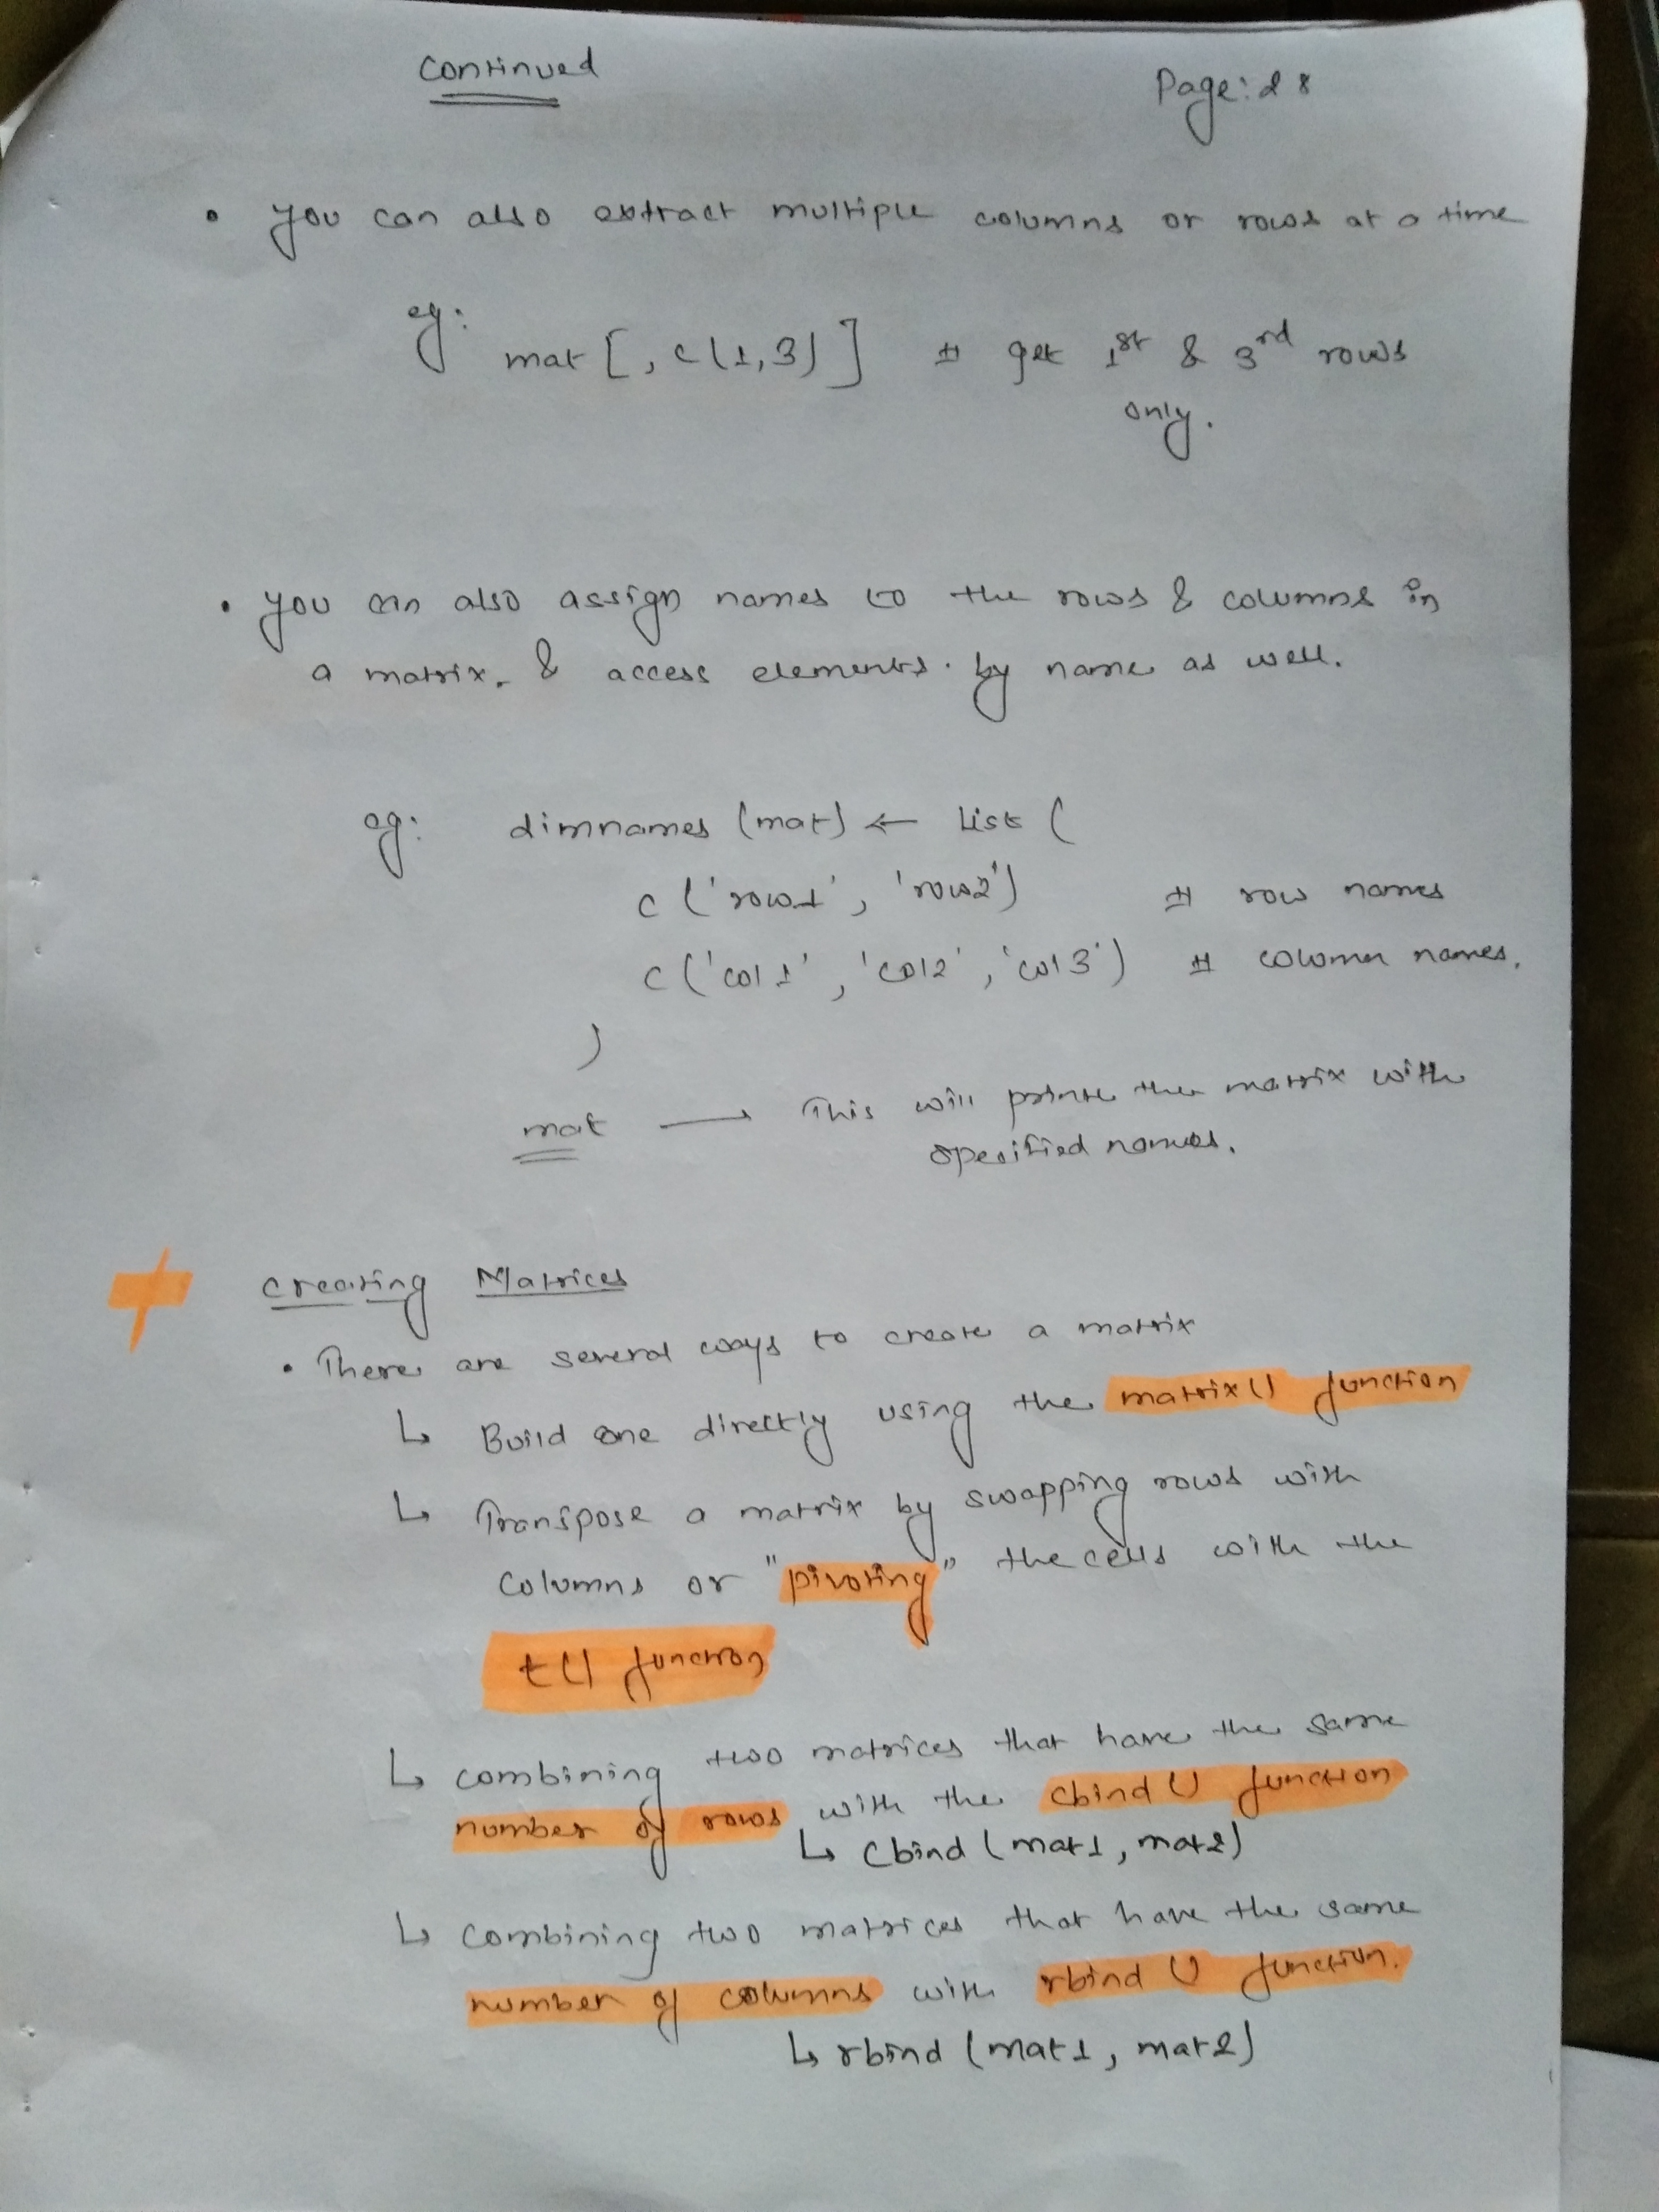 Continued
Page: 28
• You can also extract multiple columns or rows at a time
eg:
mat [, c(1,3)] # get 1st & 3rd rows
only.
• You can also assign names to the rows & columns in
a matrix. & access elements. by name as well.
eg: dimnames (mat) ← list (
c ('row1', 'row2') # row names
c ('col1', 'col2', 'col3') # column names.
)
mat → This will print the matrix with
specified names.
Creating Matrices
• There are several ways to create a matrix
↳ Build one directly using the matrix() function
↳ Transpose a matrix by swapping rows with
columns or "pivoting" the cells with the
t() function
↳ combining two matrices that have the same
number of rows with the cbind () function
↳ Cbind (mat1, mat2)
↳ combining two matrices that have the same
number of columns with rbind () function.
↳ rbind (mat1, mat2)